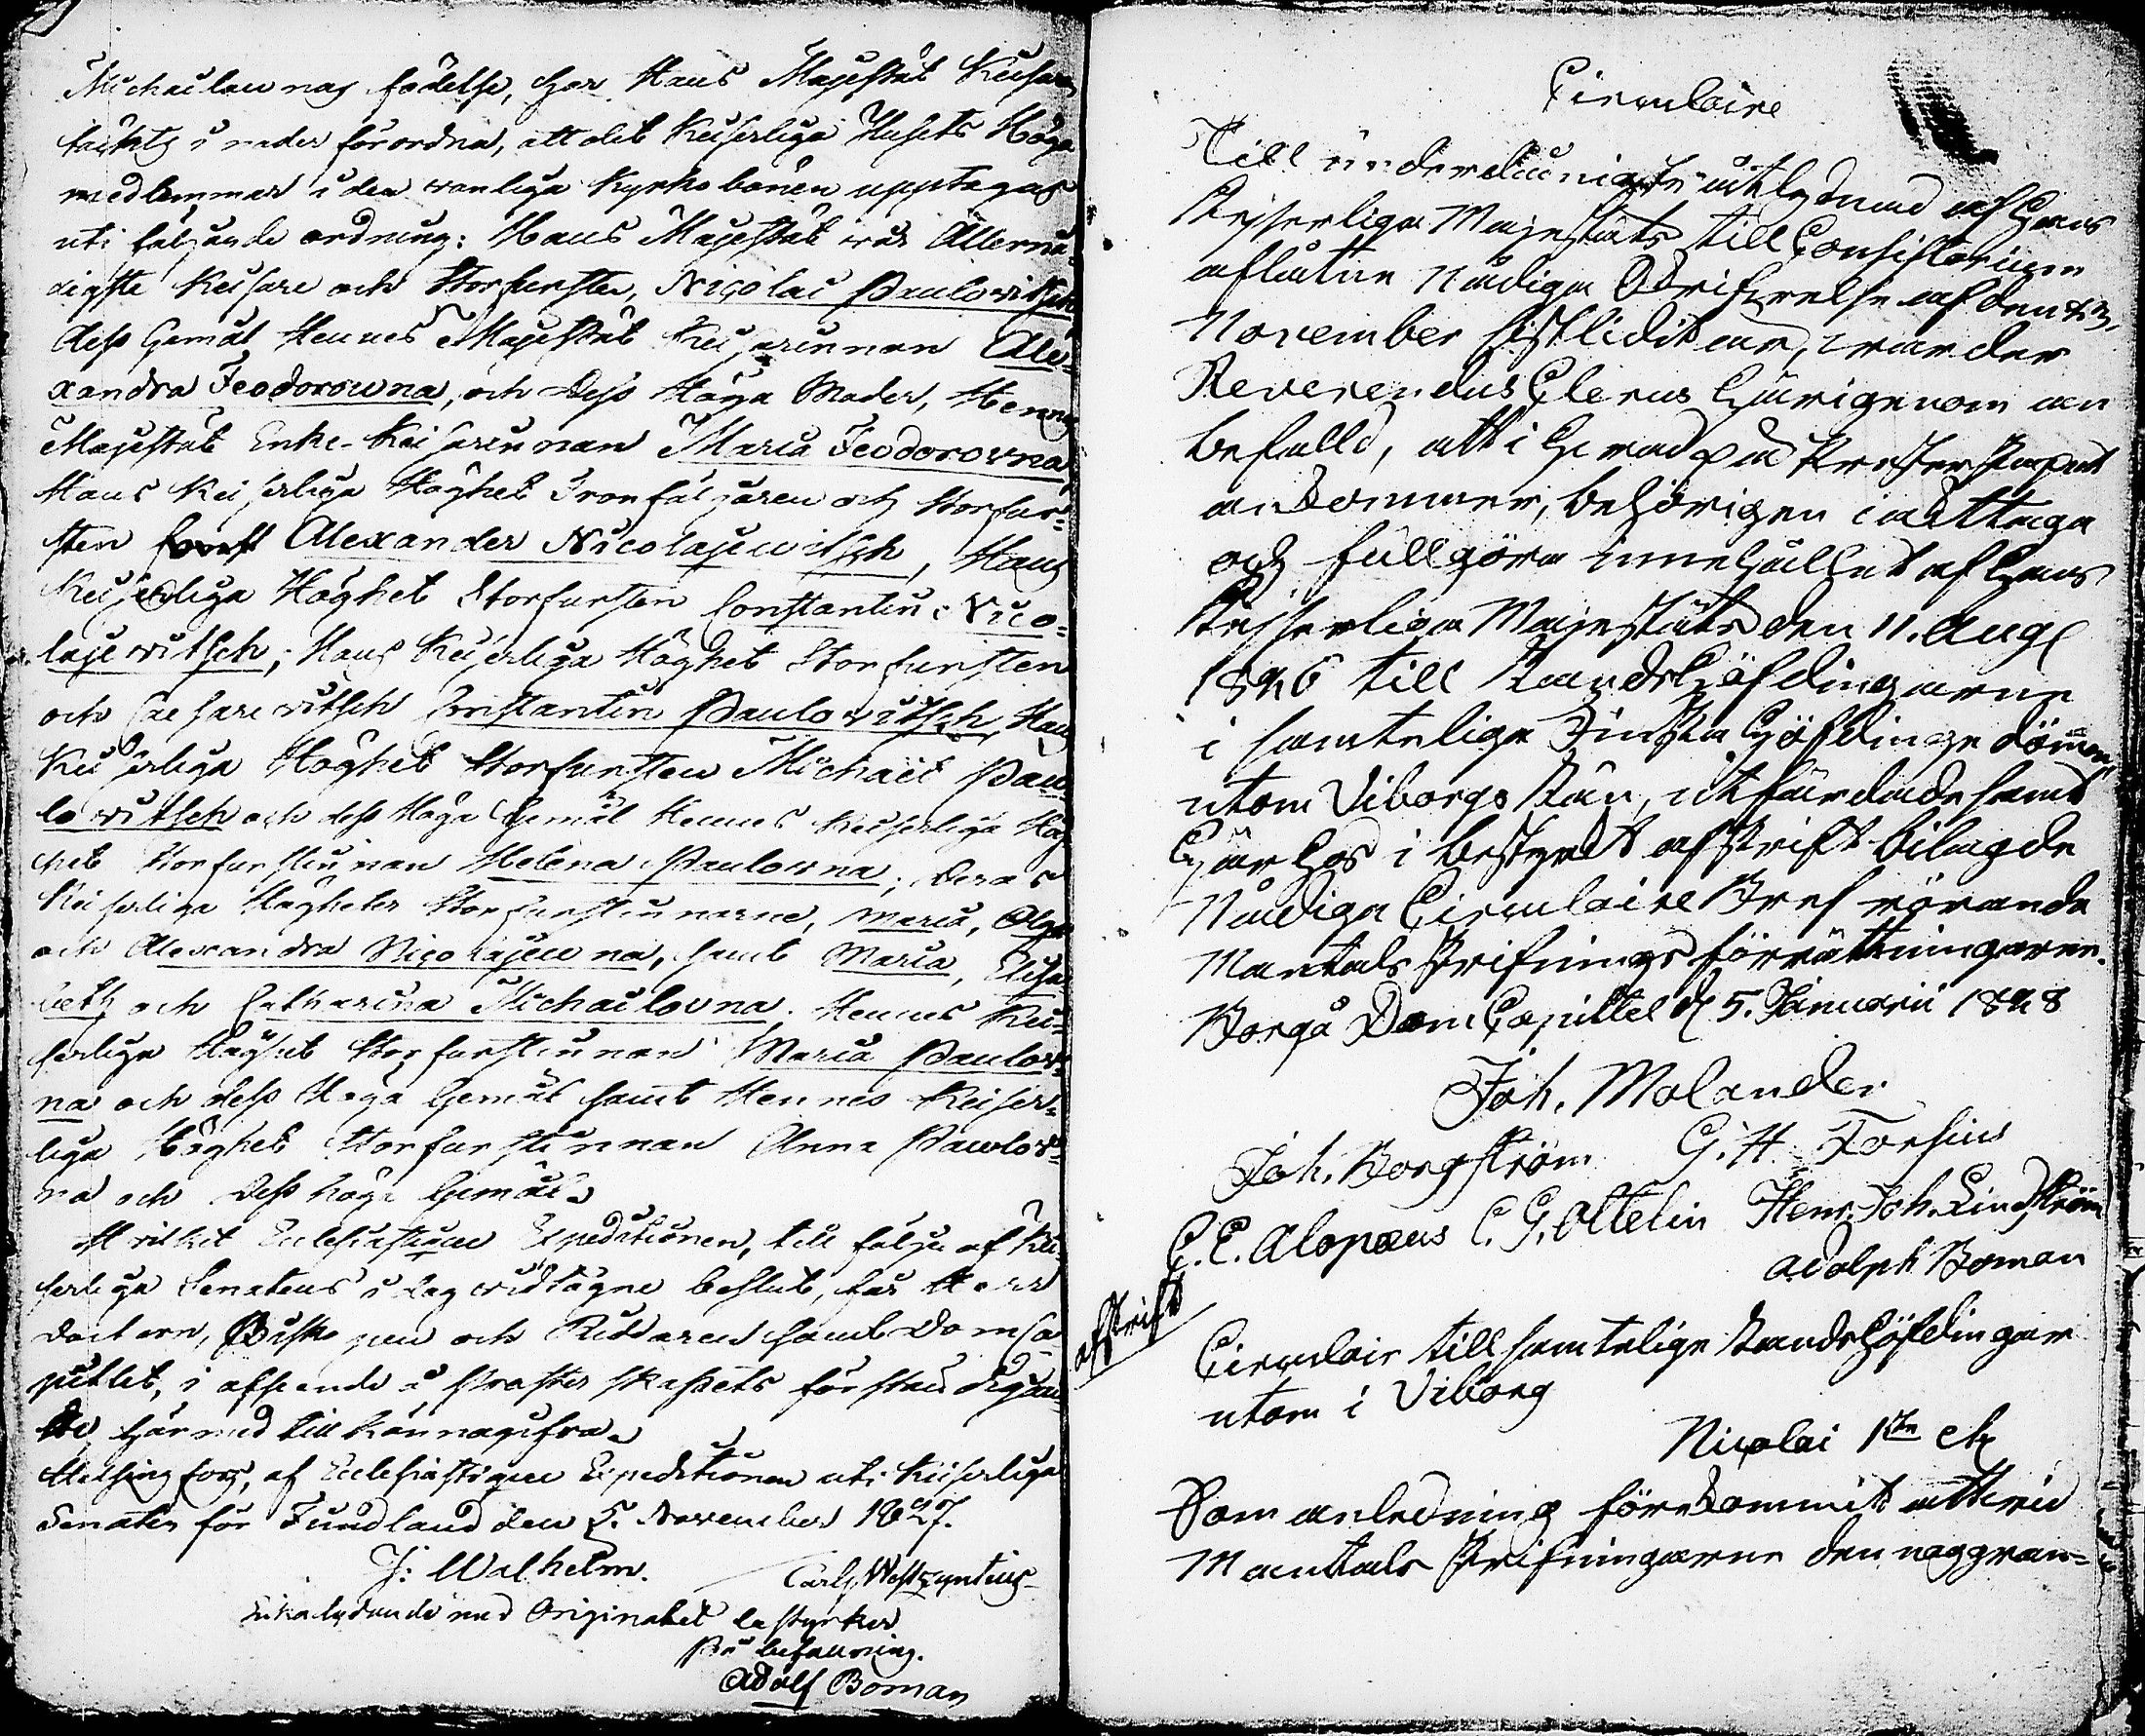 Michailownas födelse, har Hans Majestät Keisaren
täckts i nåder förordna, att det Keiserliga Husets Höga
medlemmar i den wanliga Kyrkobönen upptagas
uti följande ordning: Hans Majestät wår Allernå-
digste Keisare och Storfurste, Nicolai Paulowitsch,
dess Gemål Hennes Majestät Keisarinnan Ale-
xandra Feodorowna, och Dess Höga Moder, Hennes
Majestät Enke-Keisarinnan Maria Feodorowna,
Hans Keiserliga Höghet Tronföljaren och Storfur-
sten Alexander Nicolajewitsch, Hans
Keiserliga Höghet Storfursten Constantin Nico-
lajewitsch; Hans Keiserliga Höghet Storfursten
och Caesarewitsch Constantin Paulowitsch, Hans
Keiserliga Höghet Storfursten Michail Pau-
lowitsch och dess Höga Gemål Hennes Keiserliga Hög-
het Storfurstinnan Helena Paulowna; Deras
Keiserliga Högheter Storfurstinnorne, Maria, Olga
och Alexandra Nicolajewna, samt Maria, Elisa-
beth och Catharina Michailovna. Hennes Kei-
serliga Höghet Storfurstinnan Maria Paulow-
na och dess Höga Gemål samt Hennes Keiser-
liga Höghet Storfurstinnan Anna Paulow-
na och Dess höga Gemål.
Hvilket Eclesiastique Expeditionen, till följe af Kei-
serliga Senatens i dag widtagne beslut, får Herr
Doctorn, Biskopen och Riddaren samt DomCa-
pitlet, i afseende å Presterskapets förständigan-
de härmed tillkännagifva.
Helsingfors, af Eclesiastique Expeditionen uti Keiserliga
Senaten för Finnland den 5. November 1827.
J: Walheim.
Carl Westzyntius
Lika lydande med Originalet bestyrker
På befallning.
Adolf Boman
Circulaire
Till underdånigste åtlydnad af Hans
Kejserliga Majestäts till Consistorium
aflåtne Nådiga Skrifvelse af den 23.
November sistlidit år, warder
Reverendus Clerus härigenom an
befalld, att i hvad på Presterskapet
ankommer, behörigen iakttaga
och fullgöra innehållet af Hans
Kejserliga Majestäts den 11. Aug.
1826 till Landshöfdingarne
i samtelige Finska Höfdingedömen,
utom Viborgs Län, utfärdade samt
här hos i bestyrkt afskrift bilagde
Nådiga Circulaire Bref rörande
Mantals Skrifnings förrättningarne.
Borgå Dom Capittel d. 5. Januarii 1828
Joh. Molander
Joh. Borgström G. H. Forsius
C. E. Alopæus C. G. Ottelin Henr. Joh. Lindström
Adolph Boman
afskrift
Circulair till samtelige Landshöfdingar
utom i Viborg
Nicolai 1ste etc
Som anledning förekommit att wid
Mantals Skrifningarne den noggran-